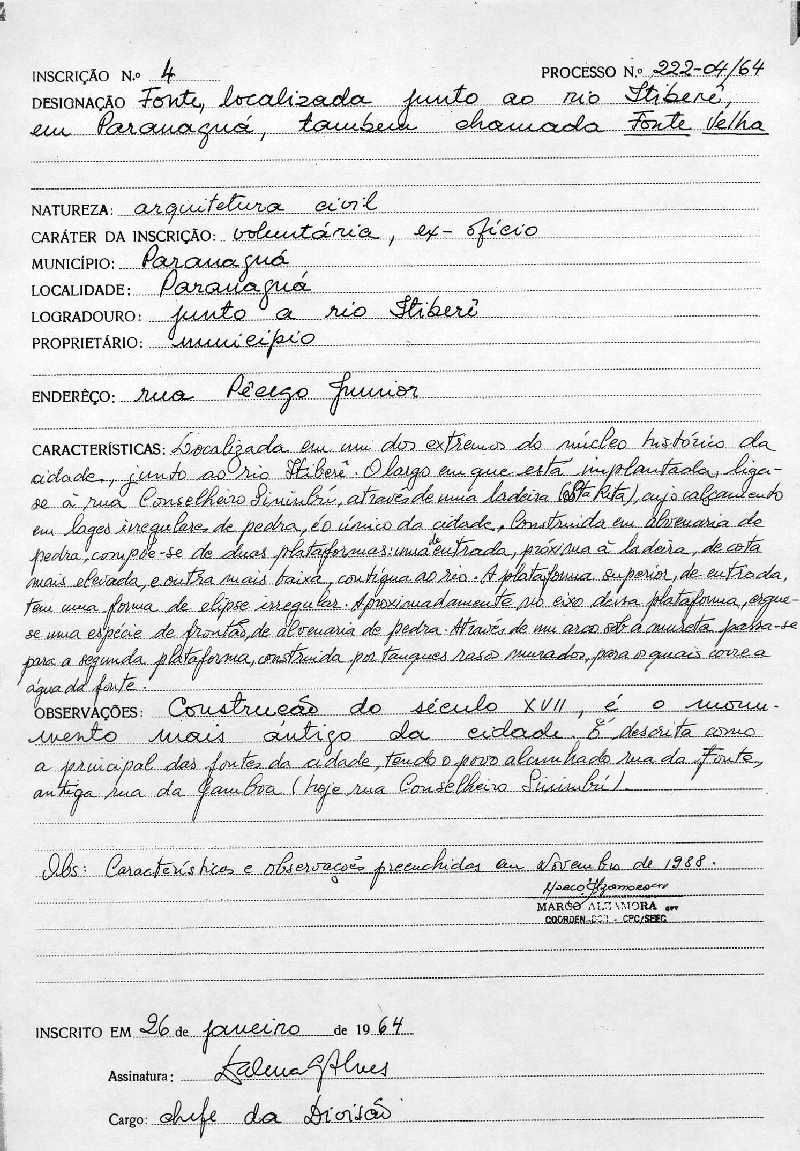 INSCRIÇÃO N.º 4 PROCESSO N.º 222-04/64
DESIGNAÇÃO Fonte, localizada junto ao rio Itiberê,
em Paranaguá, também chamada Fonte Velha
NATUREZA: arquitetura civil
CARÁTER DA INSCRIÇÃO: voluntária, ex-ofício
MUNICÍPIO: Paranaguá
LOCALIDADE: Paranaguá
LOGRADOURO: junto a rio Itiberê
PROPRIETÁRIO: município
ENDERÊÇO: rua Pêcego Junior
CARACTERÍSTICAS: Localizada em um dos extremos do núcleo histórico da
cidade, junto ao rio Itiberê. O largo em que está implantada, liga-
se à rua Conselheiro Sinimbú, através de uma ladeira (Sta Rita), cujo calçamento
em lages irregulares de pedra, é o único da cidade. Construida em alvenaria de
pedra, compõe-se de duas plataformas: uma de entrada, próxima à ladeira, de cota
mais elevada, e outra mais baixa, contígua ao rio. A plataforma superior, de entrada,
tem uma forma de elipse irregular. Aproximadamente no eixo dessa plataforma, ergue-
se uma espécie de frontão, de alvenaria de pedra. Através de um arco sob a mureta passa-se
para a segunda plataforma, construida por tanques rasos murados, para os quais corre a
água da fonte.
OBSERVAÇÕES: Construção do século XVII, é o monu-
mento mais antigo da cidade. É descrita como
a principal das fontes da cidade, tendo o povo alcunhado rua da Fonte,
antiga rua da Gamboa (hoje rua Conselheiro Sinimbú)
Obs: Características e observações preenchidas em Novembro de 1988.
MARCO ALZAMORA
CPC/SEEC
INSCRITO EM 26 de janeiro de 1964
Assinatura: Dalena G Alves
Cargo: chefe da Divisão